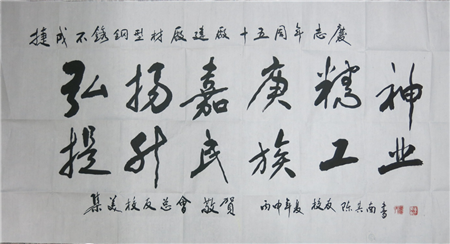 捷成不銹鋼型材廠建廠十五周年志慶
弘扬嘉庚精神
提升民族工业
集美校友总會 敬賀 丙申年夏 校友陈兴南書